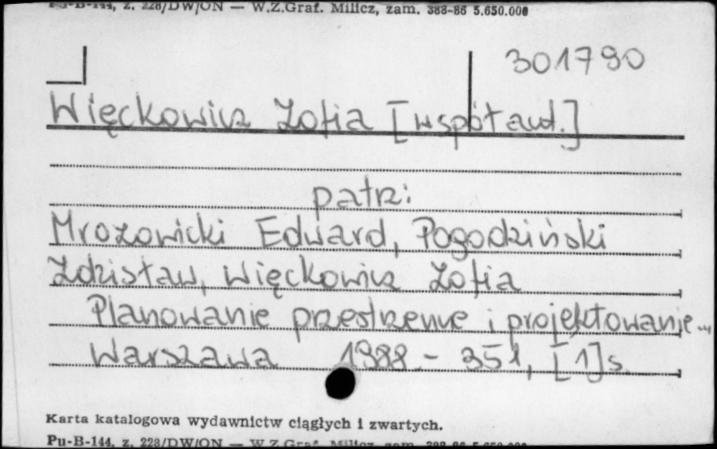 Pu-B-144, z. 228/DW/ON — W.Z.Graf. Milicz, zam. 388-86 5.650.000
301790
Więckowicz Zofia [współaut.]
patrz:
Mrozowicki Edward, Pogodziński
Zdzisław, Więckowicz Zofia
Planowanie przestrzenne i projektowanie...
Warszawa 1988. - 351, [1] s.
Karta katalogowa wydawnictw ciągłych i zwartych.
Pu-B-144, z. 228/DW/ON — W.Z.Graf. Milicz, zam. 388-86 5.650.000